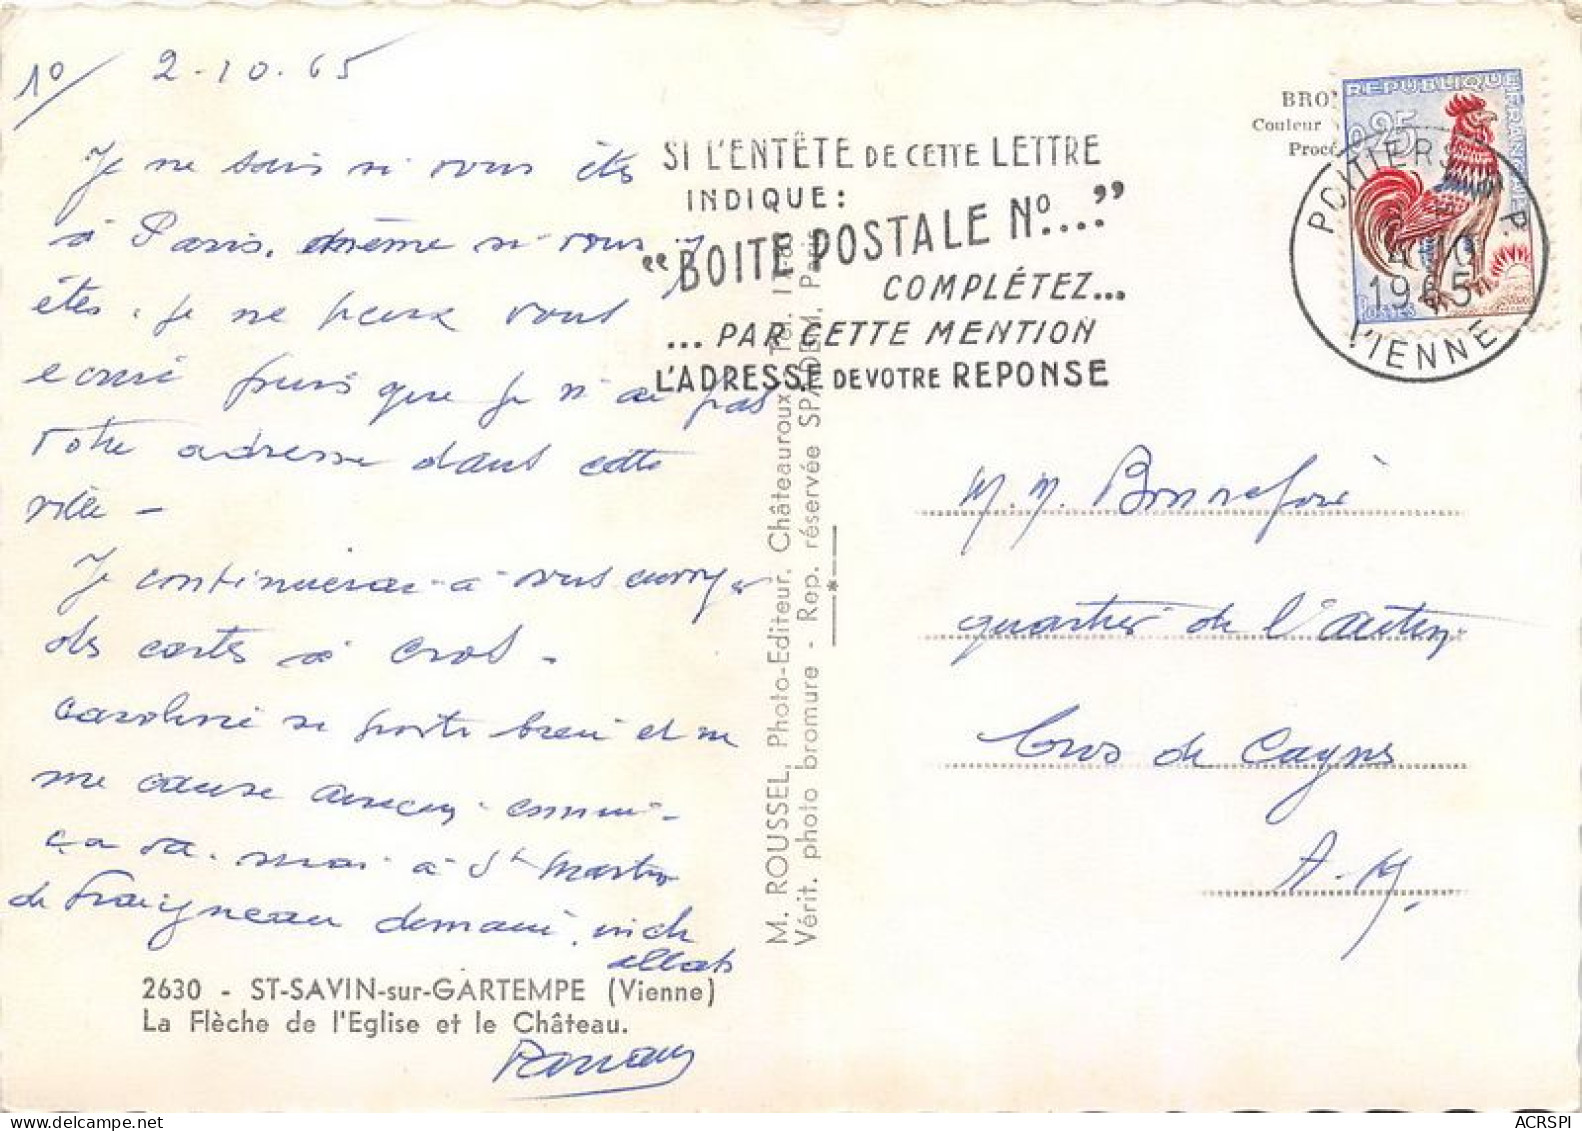 1º/ 2-10.65
Je ne sais si vous êtes
à Paris. même si vous y
êtes. je ne peux vous
ecrire puis que je n'ai pas
votre adresse dans cette
ville -
Je continuerai à vous
des cartes à Cros -
Caroline se porte bien et ne
me cause aucun
ça va. mais à St Martin
de Fraigneau demain.
2630 - ST-SAVIN-sur-GARTEMPE (Vienne)
La Flèche de l'Eglise et le Château.
M. ROUSSEL, Photo-Editeur. Châteauroux Tél.
Vérit. photo bromure - Rep. réservée SPADEM, Paris
SI L'ENTÊTE DE CETTE LETTRE
INDIQUE:
"BOITE POSTALE Nº..."
COMPLÉTEZ...
...PAR CETTE MENTION
L'ADRESSE DE VOTRE REPONSE
BRO
Couleur
Procé
REPUBLIQUE FRANÇAISE
0,25
POSTES
POITIERS R.P.
4-10
1965
VIENNE
M. M. Bonnefoi
quartier de
Cros de Cagnes
A. M.
ACRSPI